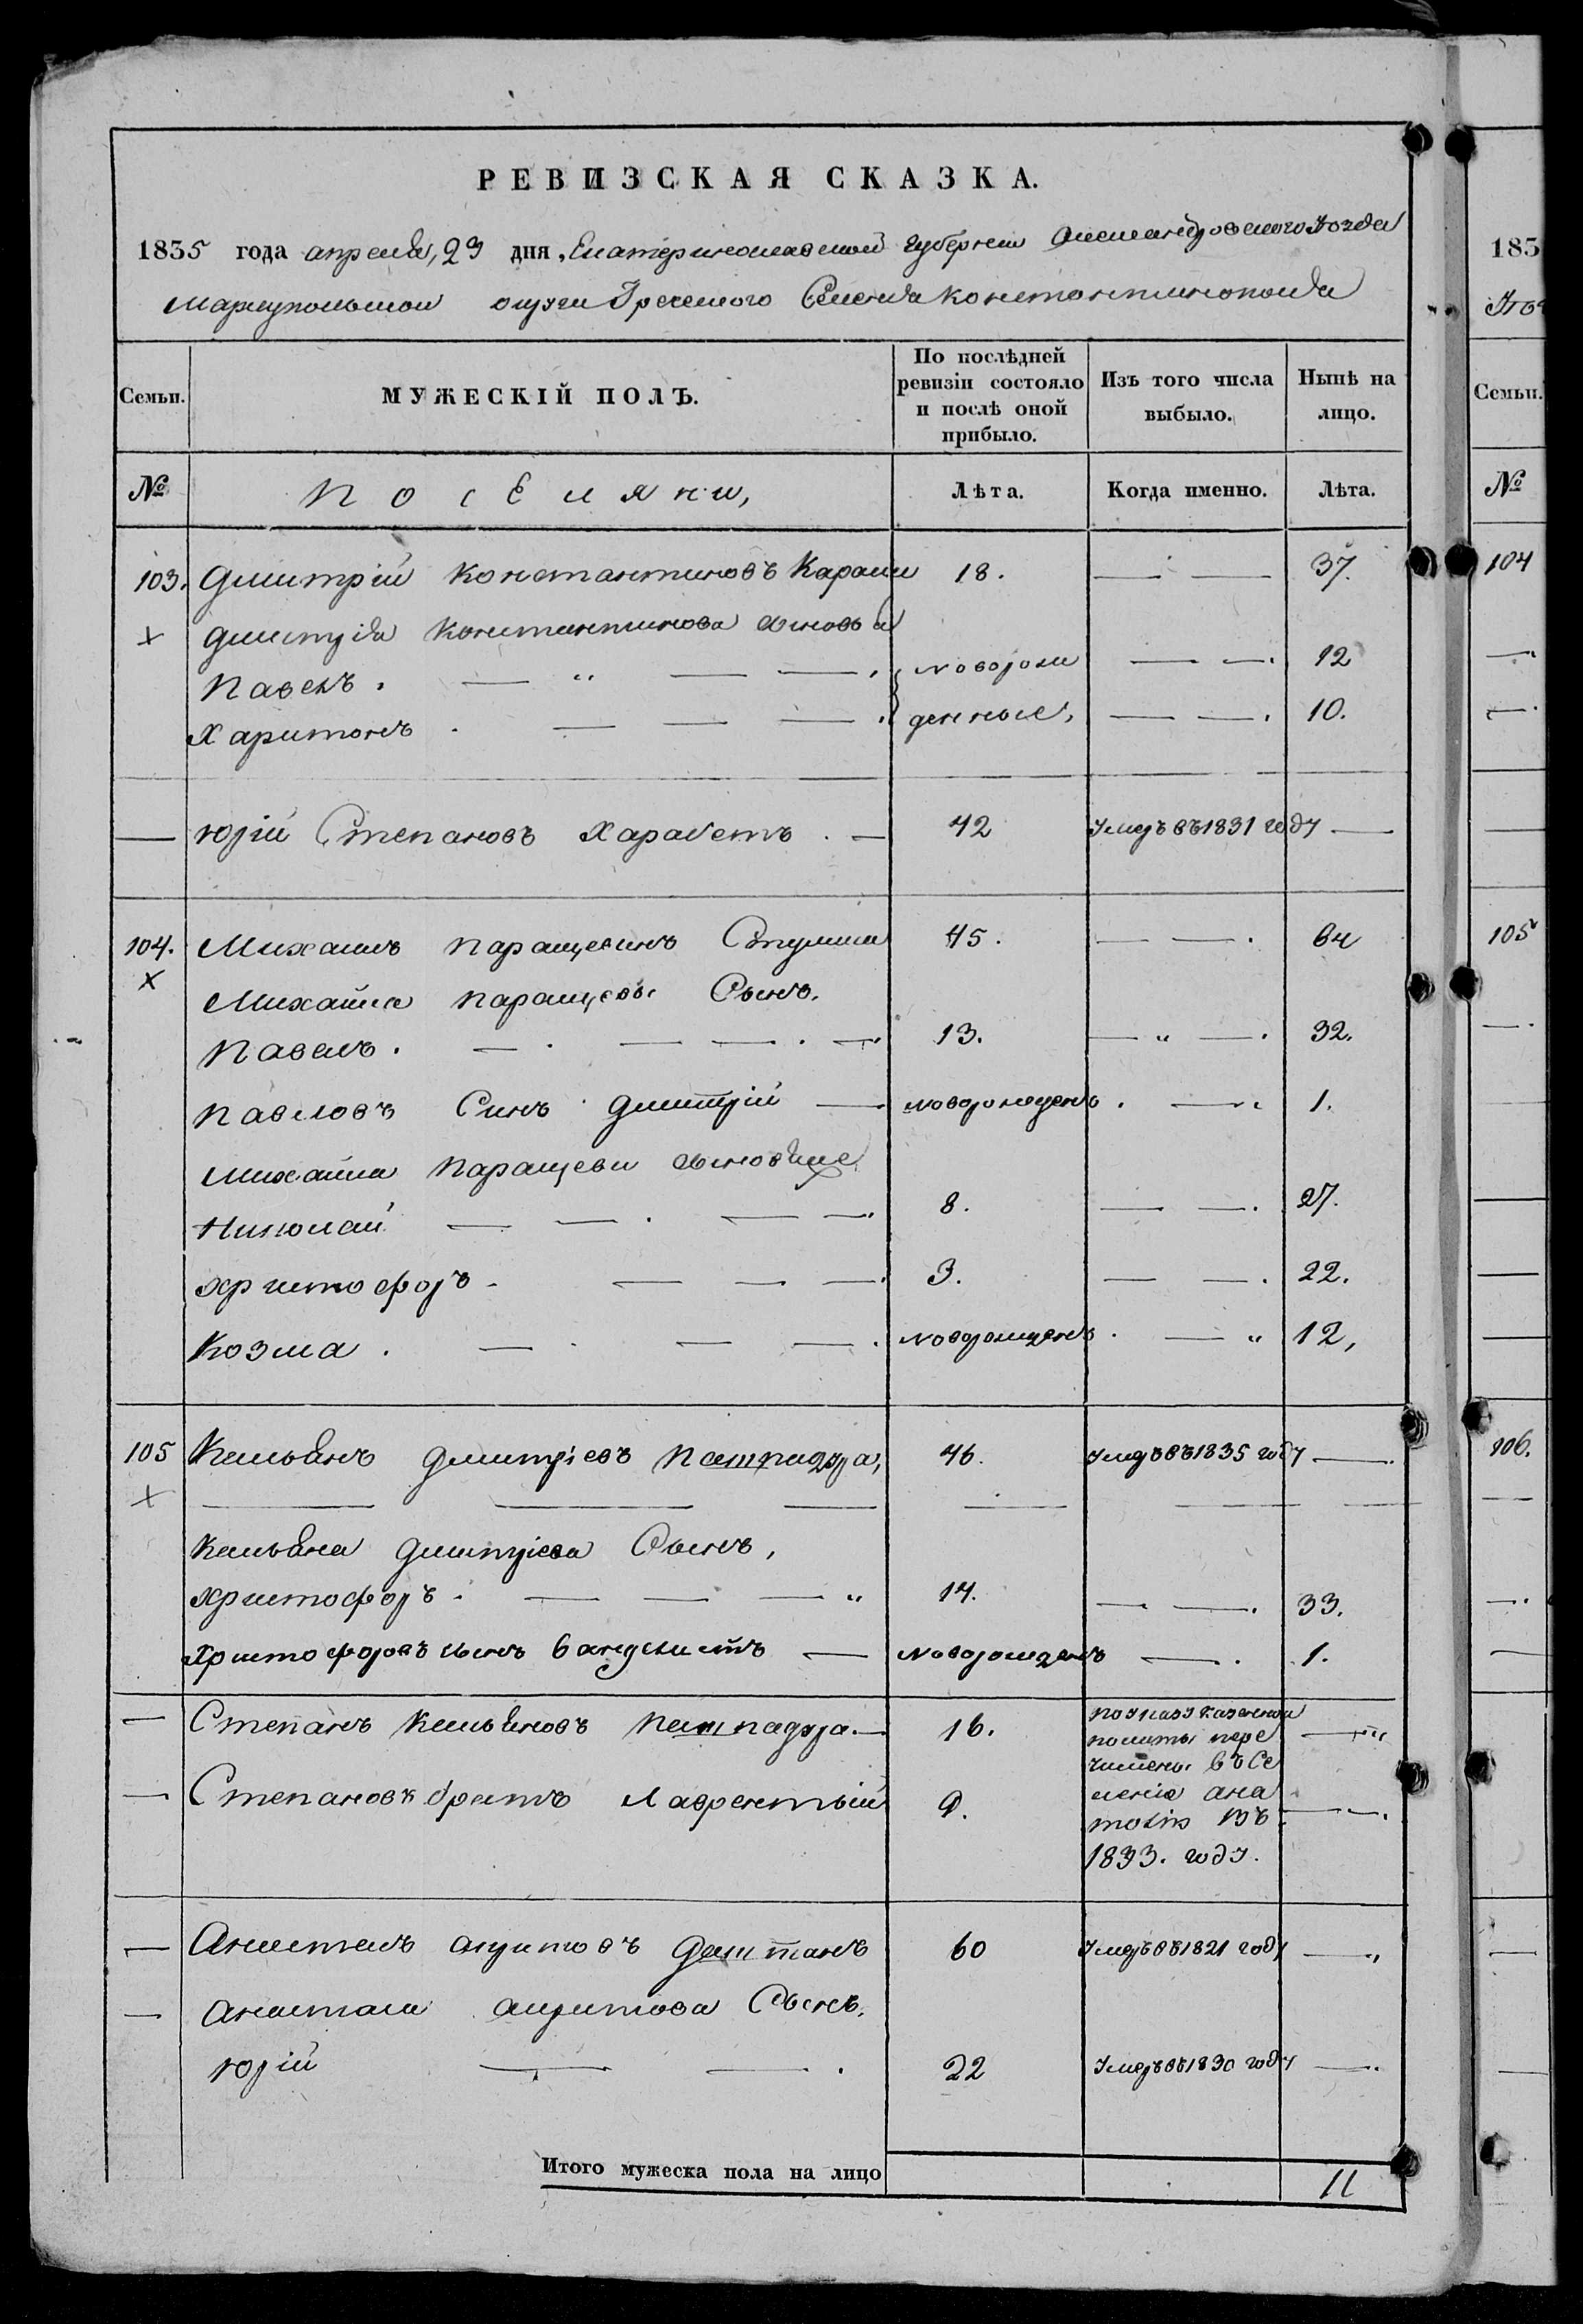 РЕВИЗСКАЯ СКАЗКА.
1835 года апреля, 23 дня, Екатеринославской губернии Александровского Уезда
Мариупольской округи Греческого Селения Константинополя
Семьи. МУЖЕСКІЙ ПОЛЪ. По послѣдней ревизіи состояло и послѣ оной прибыло. Изъ того числа выбыло. Нынѣ на лицо.
№ Поселяни, Лѣта. Когда именно. Лѣта.
103. Дмитрій Константиновъ Караши 18. — — 37.
х Дмитрія Константинова сыновья
Павелъ. — " — — новорож — — 12
Харитонъ. — — — денные, — — 10.
— Юрій Степановъ Харабетъ. — 42 Умеръ въ 1831 году —
104. Михаилъ Паращевинъ 45. — — 64
х Михайла Паращевы Сынъ.
Павелъ. — — — — 13. — " — 32.
Павловъ Синъ Дмитрій — новорожденъ. — 1.
Михайла Паращеви сыновие
Николай — — — — 8. — — 27.
Христофоръ — — — 3. — — 22.
Козма. — — — новорожденъ. — " 12,
105 Кельянъ Дмитріевъ 46. Умеръ въ 1835 году —
х — — — — — —
Кельяна Дмитріева Сынъ,
Христофоръ. — — — " 14. — — 33.
Христофоровъ сынъ Вангелистъ — новорожденъ — 1.
— Степанъ Кельяновъ — 16. По указу казенной
палаты пере
числены въ Се
— Степановъ братъ Лаврентьій 9. ленія Ана
толія въ
1833. году.
— Анастасъ Авритовъ Даштанъ 60 Умеръ въ 1821 году —
— Анастаса Авритова Сынъ.
Юрій — — 22 Умеръ въ 1830 году —
Итого мужеска пола на лицо 11
183
Семьи.
№
104
105
106.